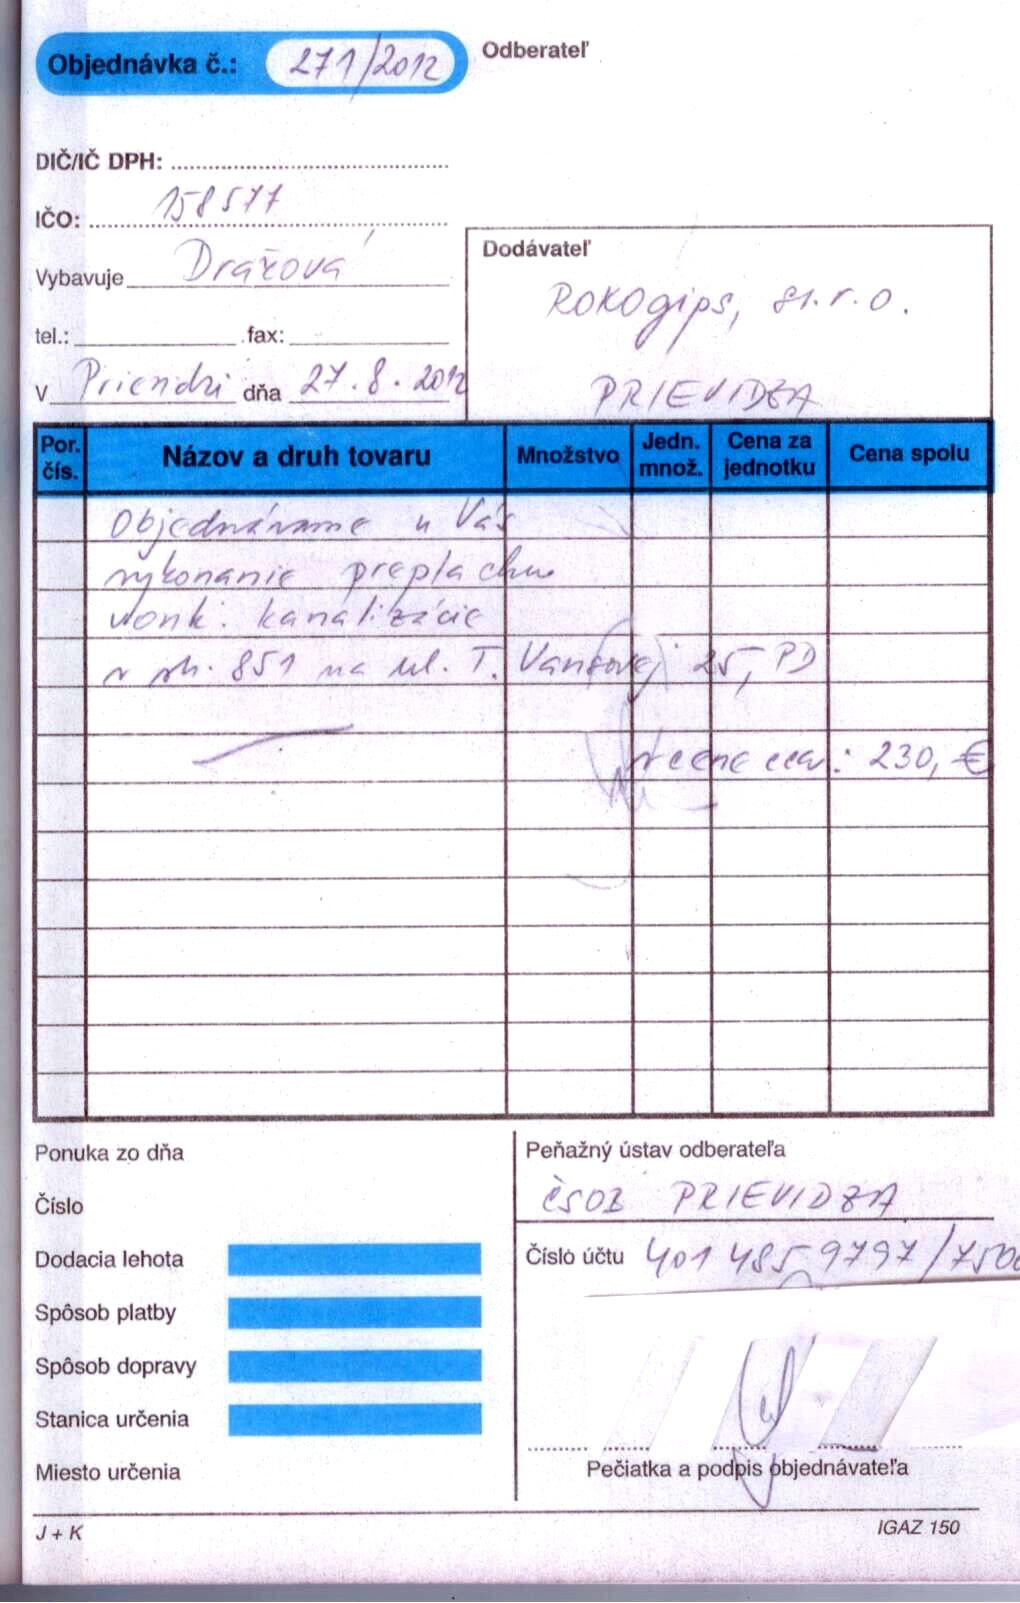 Objednávka č.: 271/2012
Odberateľ
DIČ/IČ DPH:
IČO: 158577
Vybavuje Dražová
tel.: fax:
V Prievidzi dňa 27.8.2012
Dodávateľ
ROKOgips, s.r.o.
PRIEVIDZA
Por. čís. Názov a druh tovaru Množstvo Jedn. množ. Cena za jednotku Cena spolu
Objednávame u Vás
vykonanie preplachu
vonk. kanalizácie
v sh. 851 na ul. T. Vansovej 25, PD
v cene cca: 230,€
Ponuka zo dňa
Číslo
Dodacia lehota
Spôsob platby
Spôsob dopravy
Stanica určenia
Miesto určenia
Peňažný ústav odberateľa
ČSOB PRIEVIDZA
Číslo účtu 401 485 9797/750
Pečiatka a podpis objednávateľa
J + K
IGAZ 150